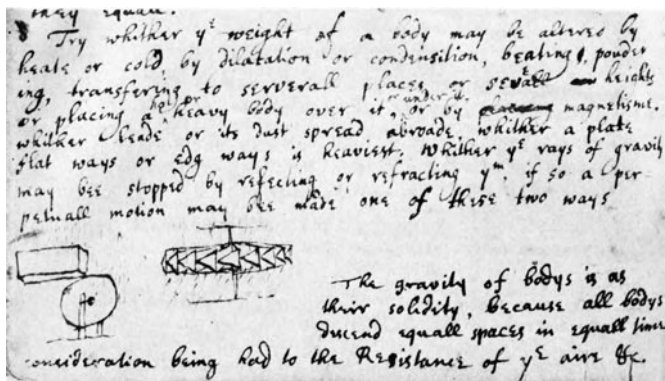 they equall.
Try whither yᵉ weight of a body may be altered by
heate or cold by dilatation or condensition, beating, powder
ing, transferring to serverall places or severall heights
or placing a hot or heavy body over it or under it, or by magnetisme.
whither leade or its dust spread abroade, whither a plate
flat ways or edg ways is heaviest. Whither yᵉ rays of gravity
may bee stopped by reflecting or refracting yᵐ, if so a per-
petuall motion may bee made one of these two ways
The gravity of bodys is as
their solidity, because all bodys
descend equall spaces in equall times
consideration being had to the Resistance of yᵉ aire &c.